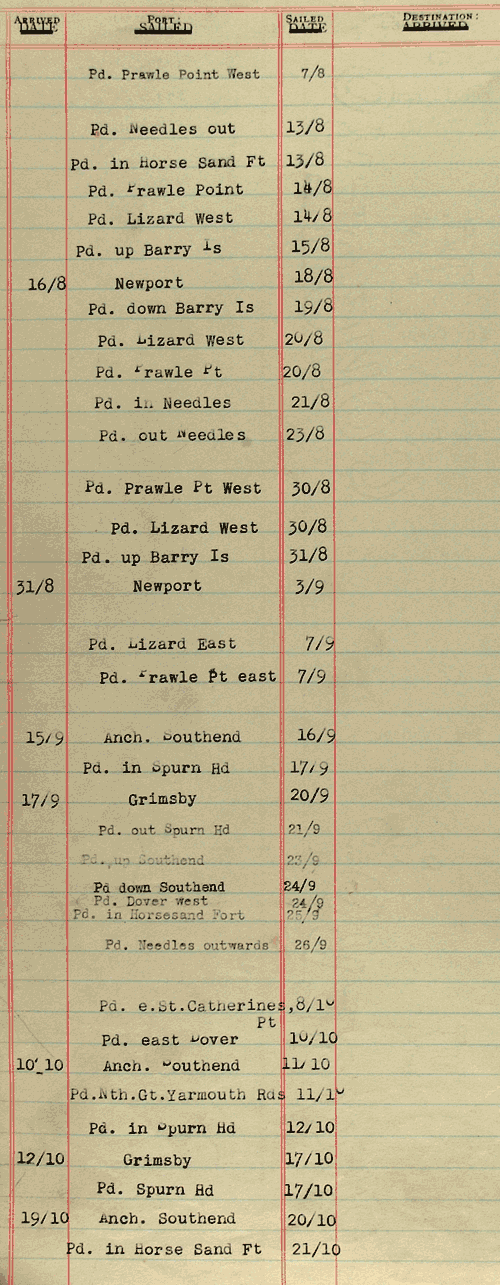 ARRIVED DATE PORT: SAILED SAILED DATE DESTINATION: ARRIVED
Pd. Prawle Point West 7/8
Pd. Needles out 13/8
Pd. in Horse Sand Ft 13/8
Pd. Prawle Point 14/8
Pd. Lizard West 14/8
Pd. up Barry Is 15/8
16/8 Newport 18/8
Pd. down Barry Is 19/8
Pd. Lizard West 20/8
Pd. Prawle Pt 20/8
Pd. in Needles 21/8
Pd. out Needles 23/8
Pd. Prawle Pt West 30/8
Pd. Lizard West 30/8
Pd. up Barry Is 31/8
31/8 Newport 3/9
Pd. Lizard East 7/9
Pd. Prawle Pt east 7/9
15/9 Anch. Southend 16/9
Pd. in Spurn Hd 17/9
17/9 Grimsby 20/9
Pd. out Spurn Hd 21/9
Pd. up Southend 23/9
Pd down Southend 24/9
Pd. Dover west 24/9
Pd. in Horsesand Fort 25/9
Pd. Needles outwards 26/9
Pd. e.St.Catherines, 8/10
Pt
Pd. east Dover 10/10
10/10 Anch. Southend 11/10
Pd.Nth.Gt.Yarmouth Rds 11/10
Pd. in Spurn Hd 12/10
12/10 Grimsby 17/10
Pd. Spurn Hd 17/10
19/10 Anch. Southend 20/10
Pd. in Horse Sand Ft 21/10